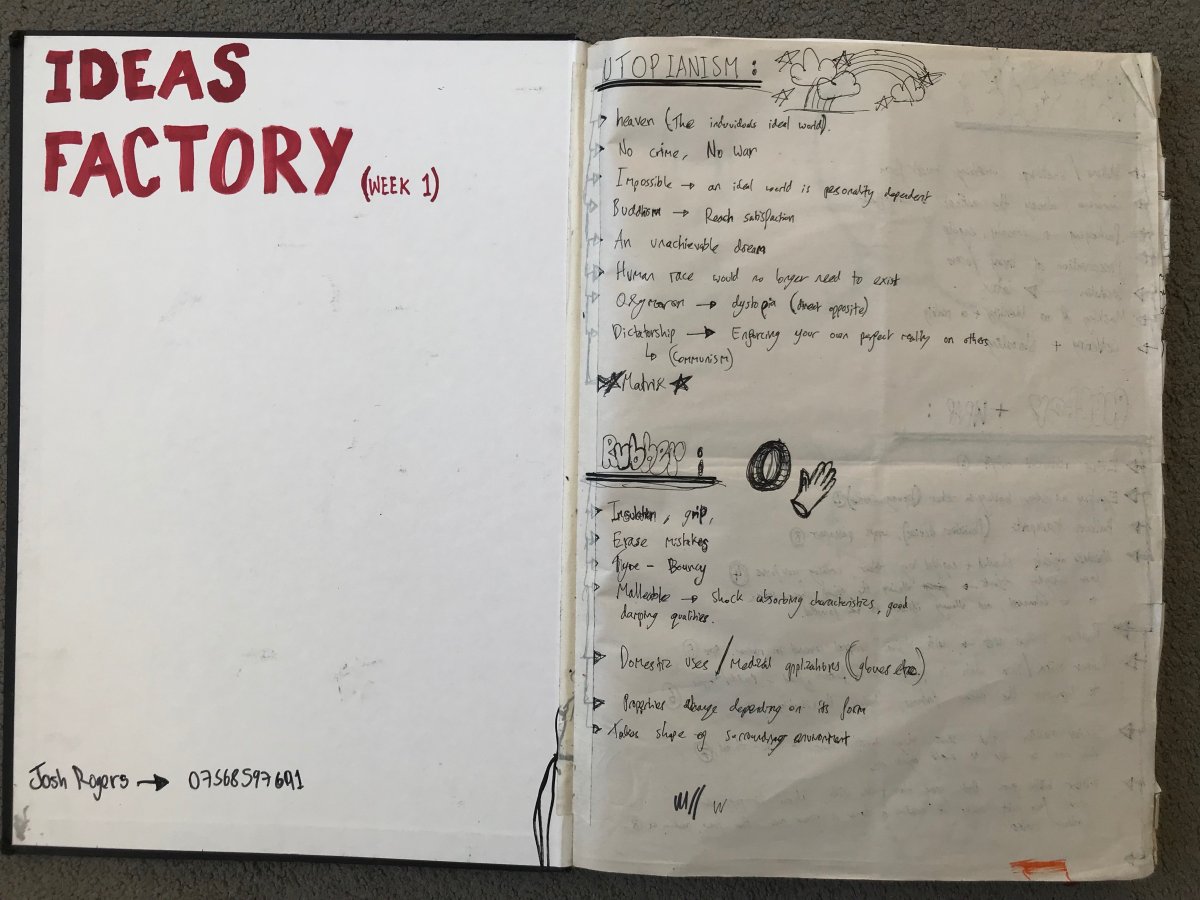 IDEAS
FACTORY (WEEK 1)
Josh Rogers → 07568597691
UTOPIANISM :
heaven (The individuals ideal world).
No crime, No war
Impossible → an ideal world is personality dependent
Buddhism → Reach satisfaction
An unachievable dream
Human race would no longer need to exist
Oxymoron → dystopia (direct opposite)
Dictatorship → Enforcing your own perfect reality on others
↳ (COMMUNISM)
Matrix
Rubber :
Insulation, grip,
Erase mistakes
Tyre - Bouncy
Malleable → shock absorbing characteristics, good
damping qualities.
Domestic uses / Medical applications (gloves etc.)
Properties change depending on its form
Takes shape of surrounding environment
W